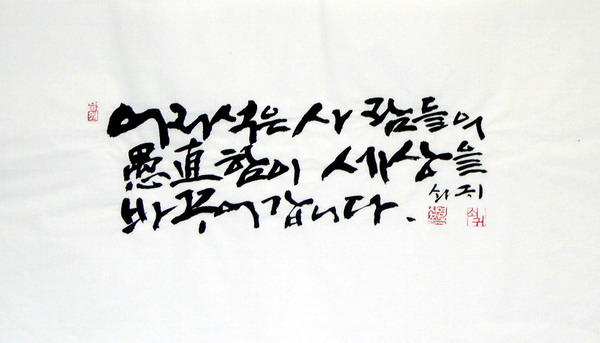 어리석은 사람들의
愚直함이 세상을
바꾸어갑니다.
쇠귀